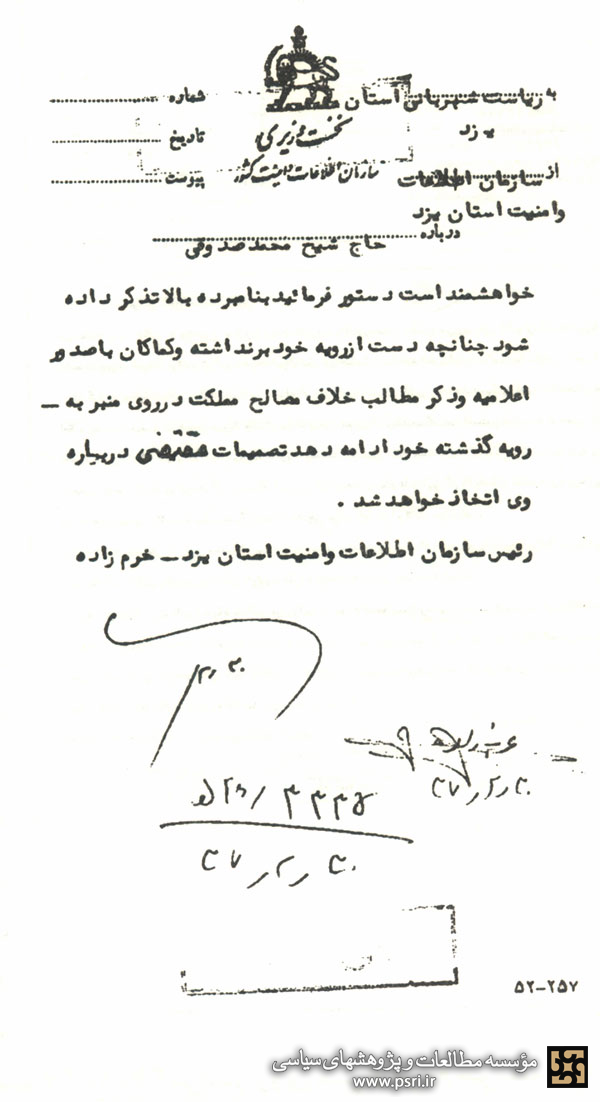 به ریاست شهربانی استان
یزد
شماره
نخست وزیری
تاریخ
از سازمان اطلاعات
سازمان اطلاعات و امنیت کشور
پیوست
وامنیت استان یزد
درباره حاج شیخ محمد صدوقی
خواهشمند است دستور فرمائید بنامبرده بالا تذکر داده
شود چنانچه دست از رویه خود برنداشته وکماکان با صدور
اعلامیه وذکر مطالب خلاف مصالح مملکت در روی منبر به –
رویه گذشته خود ادامه دهد تصمیمات مقتضی درباره
وی اتخاذ خواهد شد .
رئیس سازمان اطلاعات وامنیت استان یزد – خرم زاده
۳۰ر۲
۳۰ر۲ر۴۷
۳۰ر۲ر۴۷
۵۲-۲۵۷
مؤسسه مطالعات و پژوهشهای سیاسی
www.psri.ir